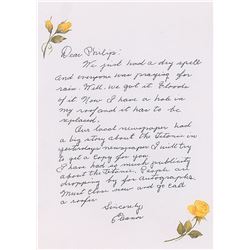 Dear Philip:
We just had a dry spell
and everyone was praying for
rain. Well. we got it Floods
of it Now I have a hole in
my roof and it has to be
replaced.
Our local newspaper had
a big story about the Titanic in
yesterdays newspaper I will try
to get a copy for you
I have had so much publicity
about the Titanic. People are
dropping by for autographs
Must close now and go call
a roofer
Sincerely
Eleanor